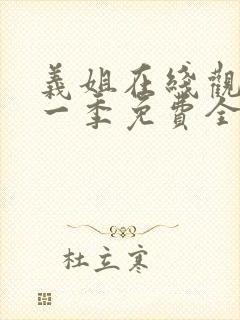 義姐在綫觀
一季免費全
杜立寒